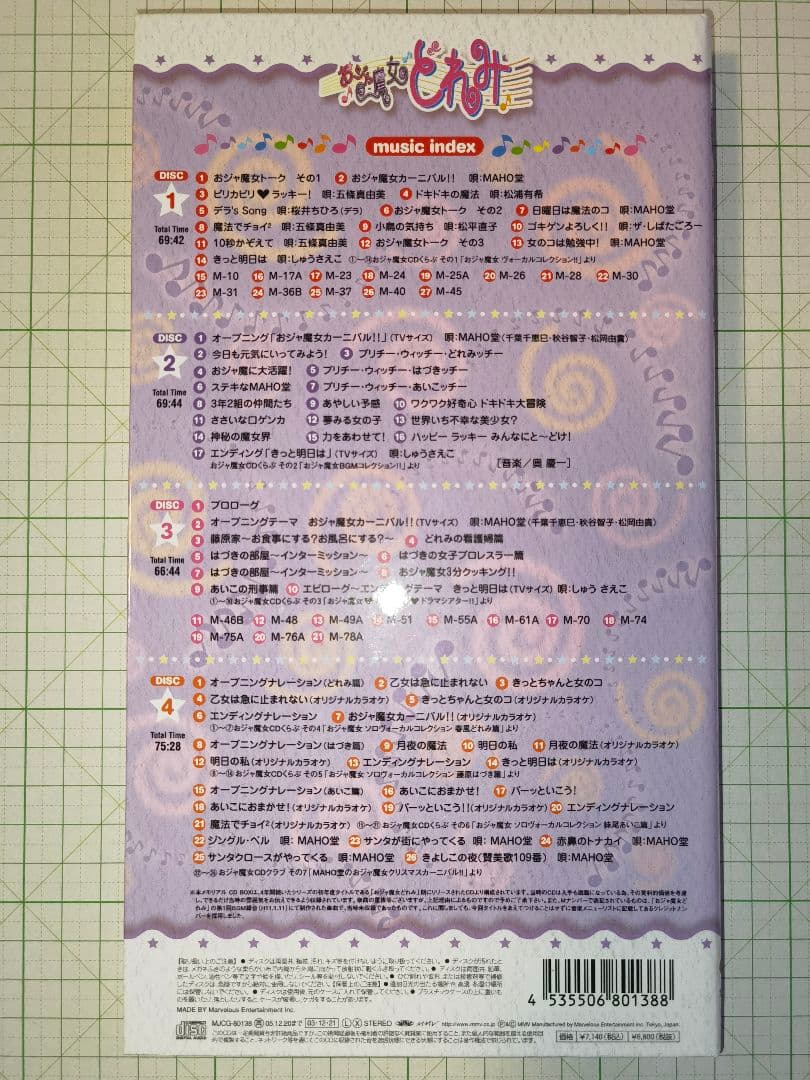 おジャ魔女どれみ
music index
DISC 1
Total Time 69:42
1 おジャ魔女トーク その1 2 おジャ魔女カーニバル!! 唄:MAHO堂
3 ピリカピリ♥ラッキー! 唄:五條真由美 4 ドキドキの魔法 唄:松浦有希
5 デラ's Song 唄:桜井ちひろ(デラ) 6 おジャ魔女トーク その2 7 日曜日は魔法のコ 唄:MAHO堂
8 魔法でチョイ² 唄:五條真由美 9 小鳥の気持ち 唄:松平直子 10 ゴキゲンよろしく!! 唄:ザ・しばたごろー
11 10秒かぞえて 唄:五條真由美 12 おジャ魔女トーク その3 13 女のコは勉強中! 唄:MAHO堂
14 きっと明日は 唄:しゅうさえこ ①〜⑭おジャ魔女CDくらぶ その1「おジャ魔女 ヴォーカルコレクション!!」より
15 M-10 16 M-17A 17 M-23 18 M-24 19 M-25A 20 M-26 21 M-28 22 M-30
23 M-31 24 M-36B 25 M-37 26 M-40 27 M-45
DISC 2
Total Time 69:44
1 オープニング「おジャ魔女カーニバル!!」(TVサイズ) 唄:MAHO堂(千葉千恵巳・秋谷智子・松岡由貴)
2 今日も元気にいってみよう! 3 プリチー・ウィッチー・どれみッチー
4 おジャ魔に大活躍! 5 プリチー・ウィッチー・はづきッチー
6 ステキなMAHO堂 7 プリチー・ウィッチー・あいこッチー
8 3年2組の仲間たち 9 あやしい予感 10 ワクワク好奇心 ドキドキ大冒険
11 ささいな口ゲンカ 12 夢みる女の子 13 世界いち不幸な美少女?
14 神秘の魔女界 15 力をあわせて! 16 ハッピー ラッキー みんなにと〜どけ!
17 エンディング「きっと明日は」(TVサイズ) 唄:しゅうさえこ
おジャ魔女CDくらぶ その2「おジャ魔女BGMコレクション!!」より [音楽/奥 慶一]
DISC 3
Total Time 66:44
1 プロローグ
2 オープニングテーマ おジャ魔女カーニバル!!(TVサイズ) 唄:MAHO堂(千葉千恵巳・秋谷智子・松岡由貴)
3 藤原家〜お食事にする?お風呂にする?〜 4 どれみの看護婦篇
5 はづきの部屋〜インターミッション〜 6 はづきの女子プロレスラー篇
7 はづきの部屋〜インターミッション〜 8 おジャ魔女3分クッキング!!
9 あいこの刑事篇 10 エピローグ〜エンディングテーマ きっと明日は(TVサイズ) 唄:しゅう さえこ
①〜⑩おジャ魔女CDくらぶ その3「おジャ魔女 ♥ドラマシアター!!」より
11 M-46B 12 M-48 13 M-49A 14 M-51 15 M-55A 16 M-61A 17 M-70 18 M-74
19 M-75A 20 M-76A 21 M-78A
DISC 4
Total Time 75:28
1 オープニングナレーション(どれみ篇) 2 乙女は急に止まれない 3 きっとちゃんと女のコ
4 乙女は急に止まれない(オリジナルカラオケ) 5 きっとちゃんと女のコ(オリジナルカラオケ)
6 エンディングナレーション 7 おジャ魔女カーニバル!!(オリジナルカラオケ)
①〜⑦おジャ魔女CDくらぶ その4「おジャ魔女 ソロヴォーカルコレクション 春風どれみ篇」より
8 オープニングナレーション(はづき篇) 9 月夜の魔法 10 明日の私 11 月夜の魔法(オリジナルカラオケ)
12 明日の私(オリジナルカラオケ) 13 エンディングナレーション 14 きっと明日は(オリジナルカラオケ)
⑧〜⑭おジャ魔女CDくらぶ その5「おジャ魔女 ソロヴォーカルコレクション 藤原はづき篇」より
15 オープニングナレーション(あいこ篇) 16 あいこにおまかせ! 17 バーッといこう!
18 あいこにおまかせ!(オリジナルカラオケ) 19 バーッといこう!(オリジナルカラオケ) 20 エンディングナレーション
21 魔法でチョイ²(オリジナルカラオケ) ⑮〜㉑おジャ魔女CDくらぶ その6「おジャ魔女 ソロヴォーカルコレクション 妹尾あいこ篇」より
22 ジングル・ベル 唄:MAHO堂 23 サンタが街にやってくる 唄:MAHO堂 24 赤鼻のトナカイ 唄:MAHO堂
25 サンタクロースがやってくる 唄:MAHO堂 26 きよしこの夜(賛美歌109番) 唄:MAHO堂
㉒〜㉖おジャ魔女CDクラブ その7「MAHO堂のおジャ魔女クリスマスカーニバル!!」より
MADE BY Marvelous Entertainment Inc.
4 535506 801388
MJCG-80138 05.12.20 03-12-21 STEREO http://www.mmv.co.jp MMV Manufactured by Marvelous Entertainment Inc. Tokyo, Japan.
価格 ¥7,140(税込) ¥6,800(税抜)
COMPACT disc DIGITAL AUDIO